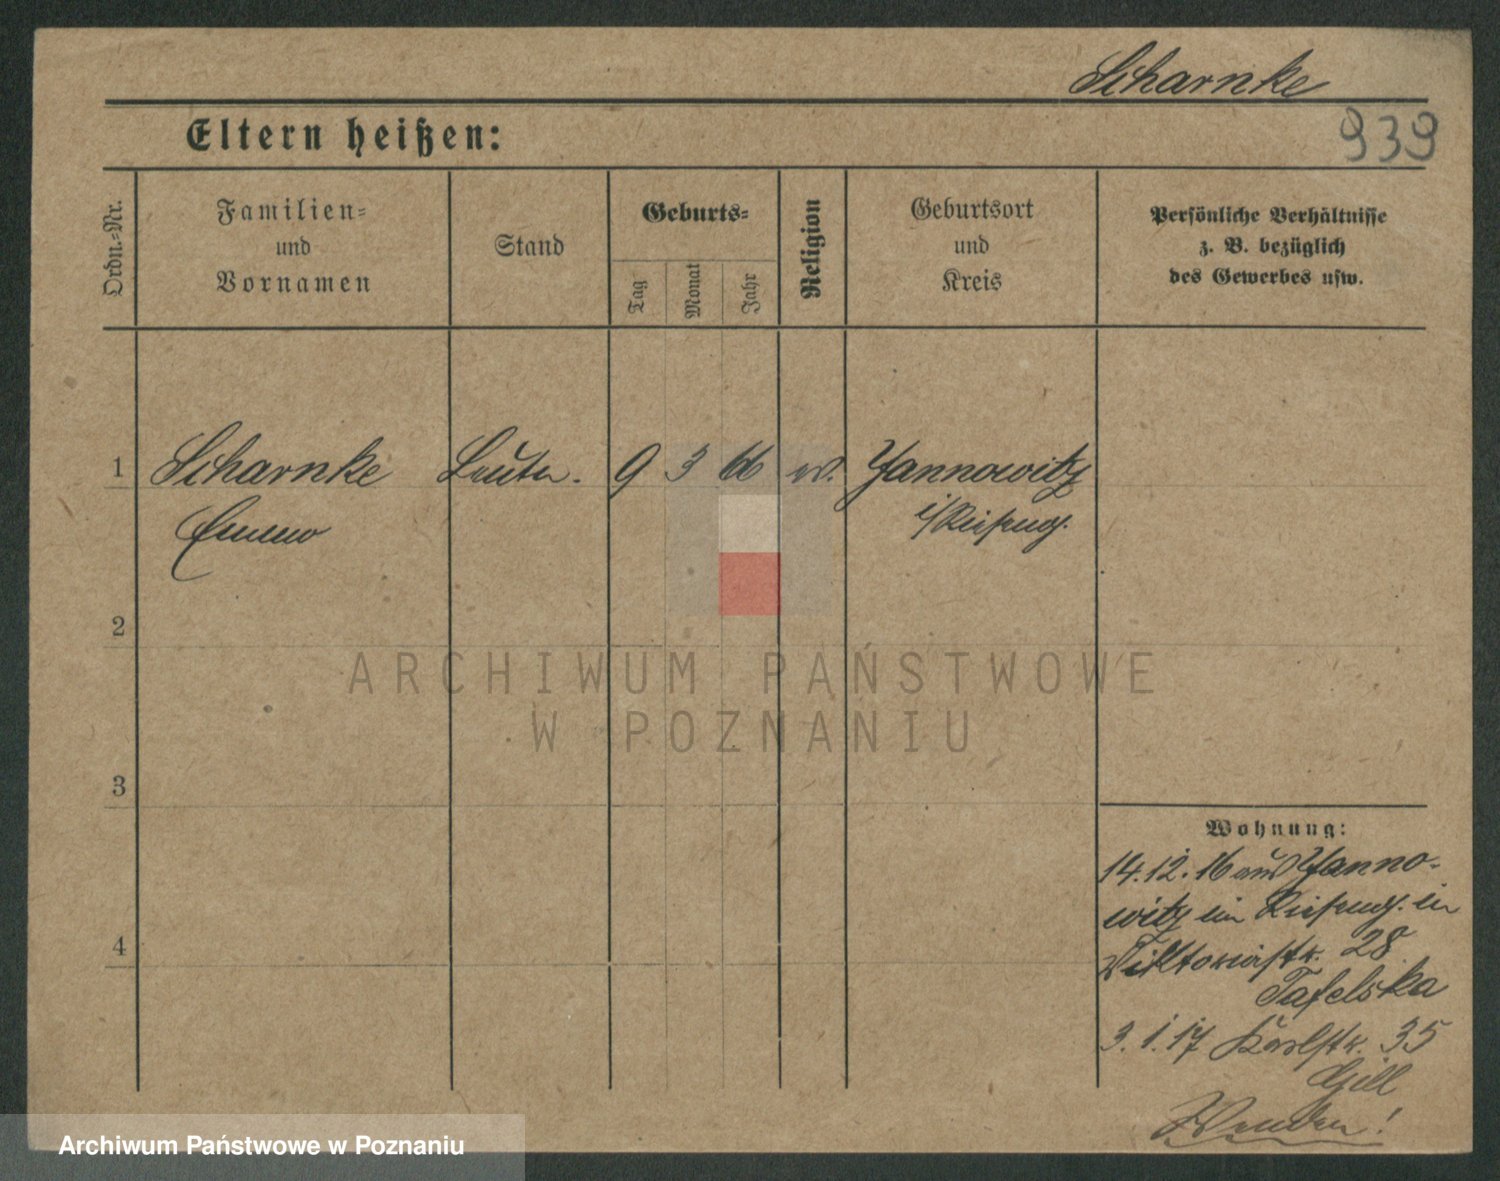 Scharnke
939
Eltern heißen:
Ordn.-Nr.
Familien-
und
Vornamen
Stand
Geburts-
Tag
Monat
Jahr
Religion
Geburtsort
und
Kreis
Persönliche Verhältnisse
z. B. bezüglich
des Gewerbes usw.
1 Scharnke 9 3 66 Jannowitz
i/Riesengb.
2
3
4
ARCHIWUM PAŃSTWOWE
W POZNANIU
Wohnung:
14.12.16 aus Janno-
witz im Riesengb. in
Viktoriastr. 28
Tafelska
3.1.17 Karlstr. 35
Gill
Wenden!
Archiwum Państwowe w Poznaniu